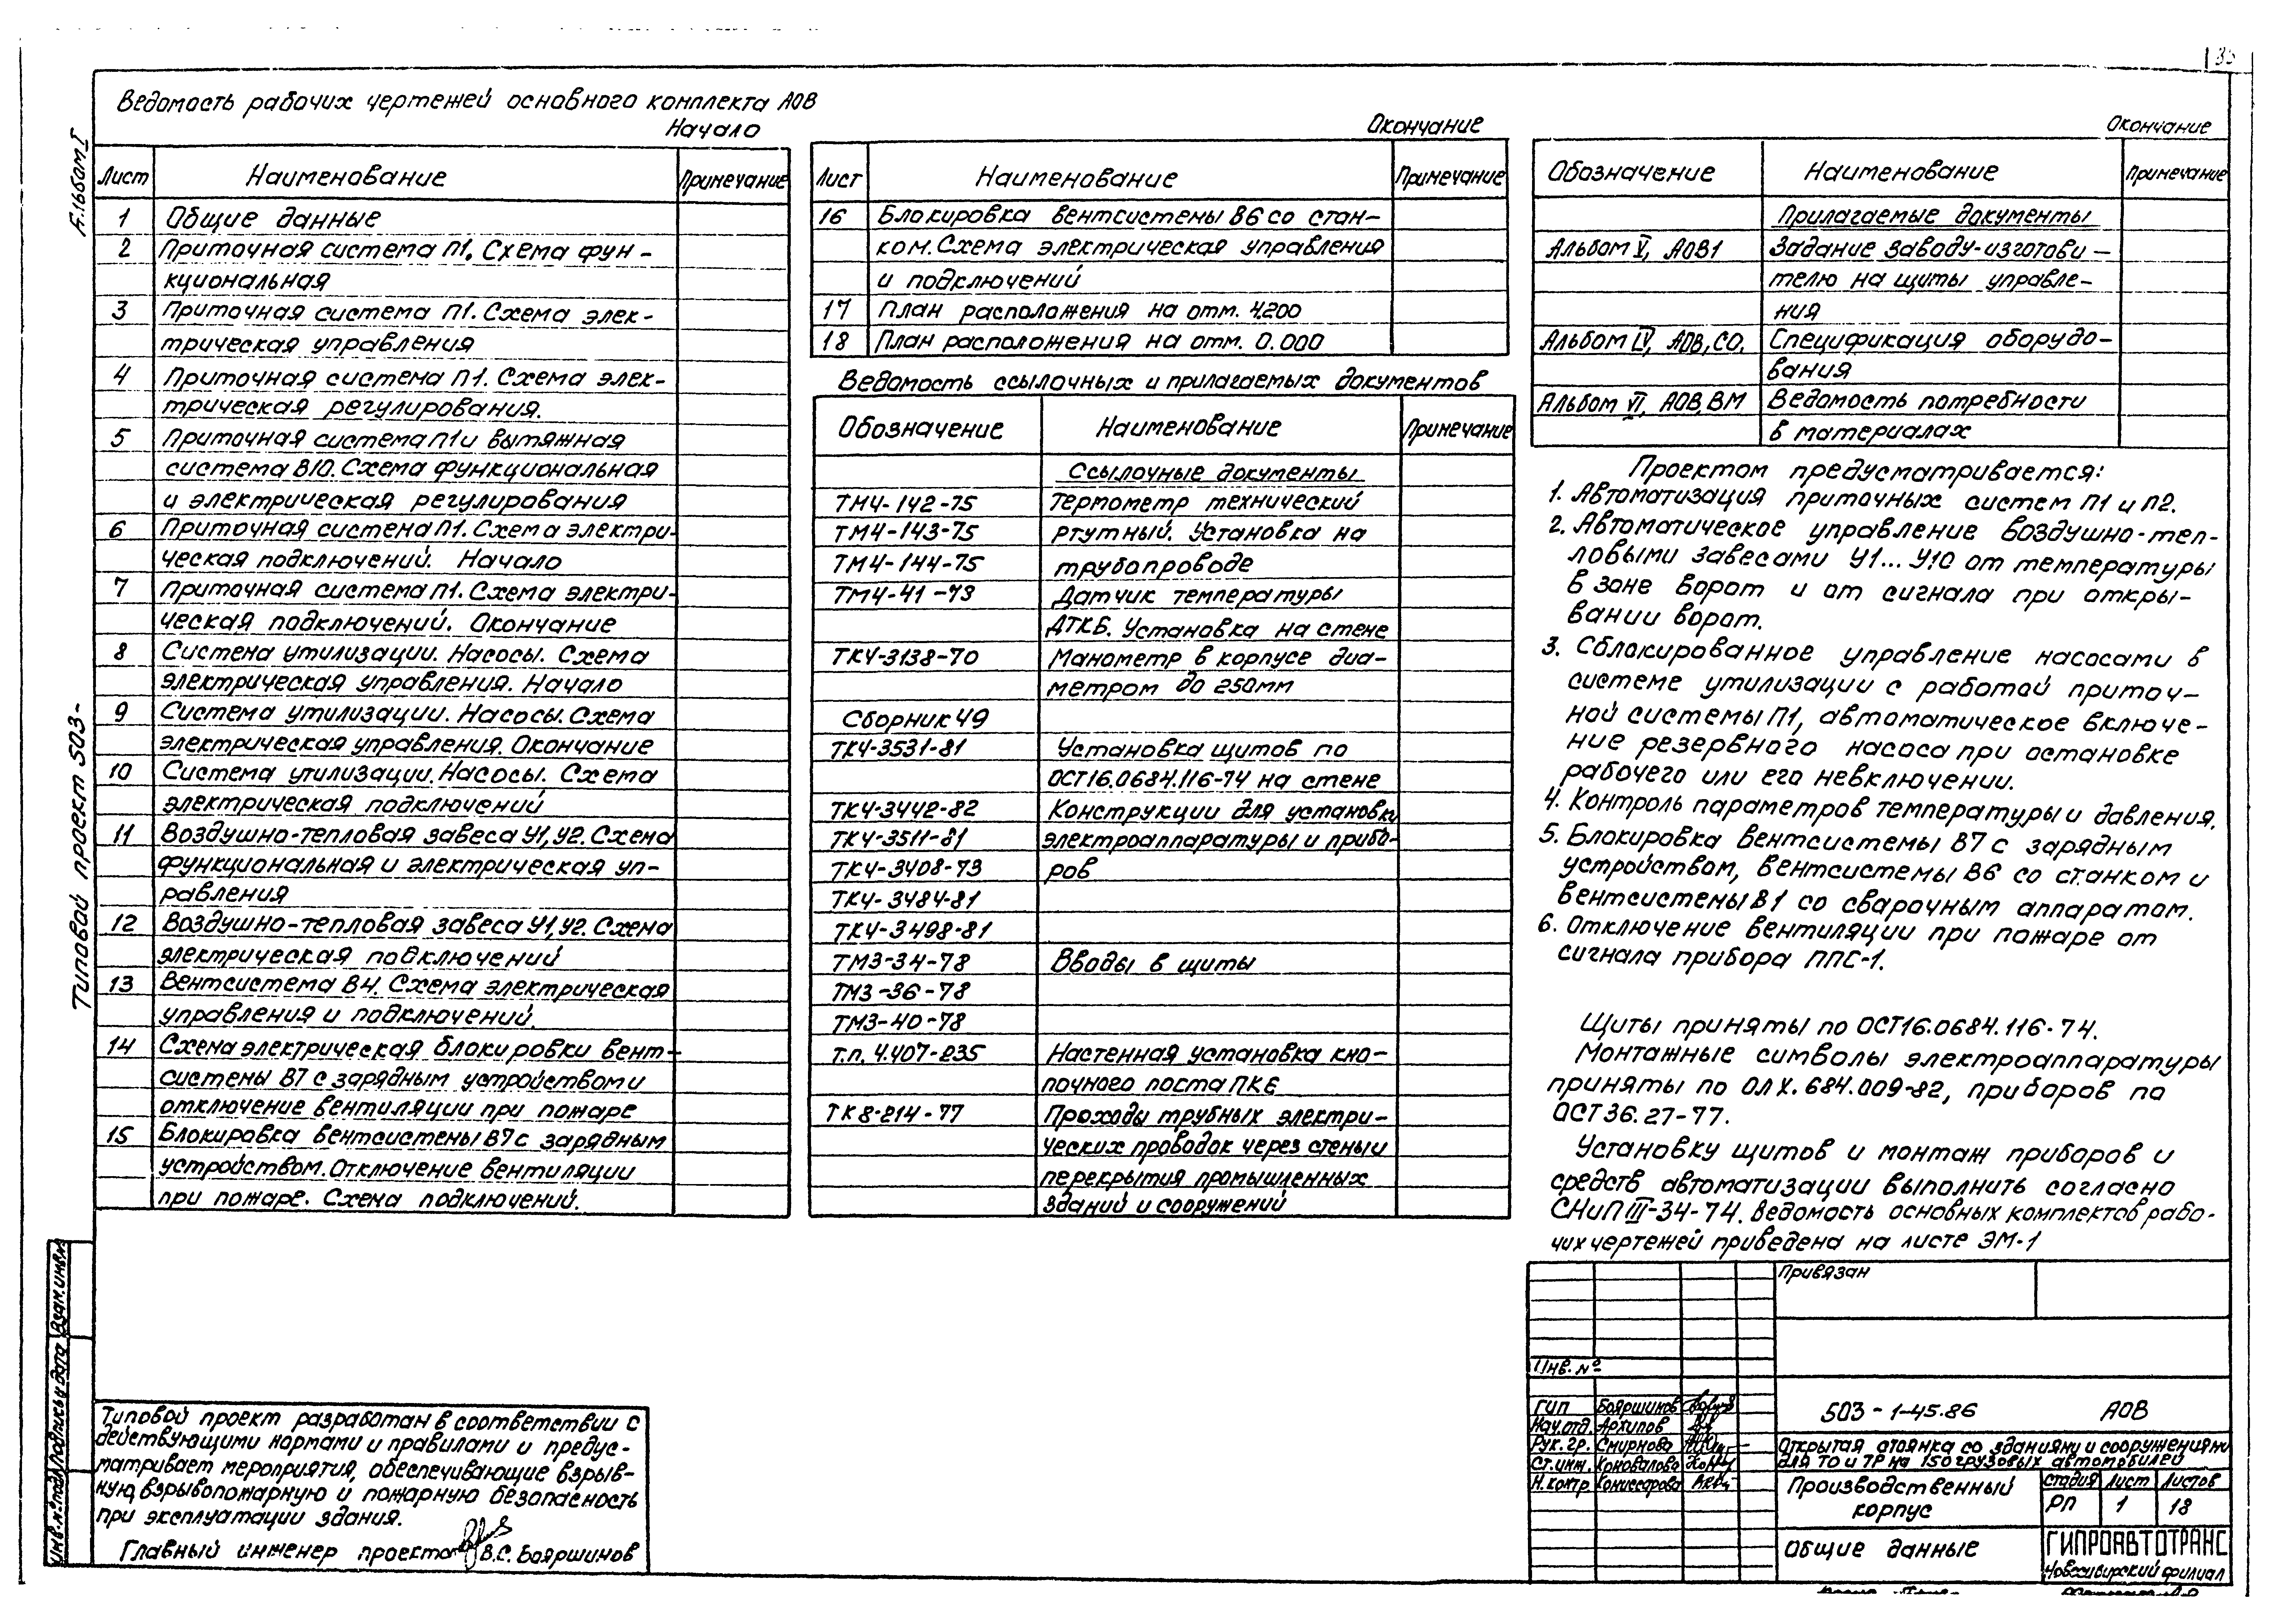 35
Альбом I
Типовой проект 503-
Ведомость рабочих чертежей основного комплекта АОВ
Начало
Лист Наименование Примечание
1 Общие данные
2 Приточная система П1. Схема фун-
кциональная
3 Приточная система П1. Схема элек-
трическая управления
4 Приточная система П1. Схема элек-
трическая регулирования.
5 Приточная система П1 и вытяжная
система В10. Схема функциональная
и электрическая регулирования
6 Приточная система П1. Схема электри-
ческая подключений. Начало
7 Приточная система П1. Схема электри-
ческая подключений. Окончание
8 Система утилизации. Насосы. Схема
электрическая управления. Начало
9 Система утилизации. Насосы. Схема
электрическая управления. Окончание
10 Система утилизации. Насосы. Схема
электрическая подключений
11 Воздушно-тепловая завеса У1, У2. Схема
функциональная и электрическая уп-
равления
12 Воздушно-тепловая завеса У1, У2. Схема
электрическая подключений
13 Вентсистема В4. Схема электрическая
управления и подключений.
14 Схема электрическая блокировки вент-
системы В7 с зарядным устройством и
отключение вентиляции при пожаре
15 Блокировка вентсистемы В7 с зарядным
устройством. Отключение вентиляции
при пожаре. Схема подключений.
Окончание
Лист Наименование Примечание
16 Блокировка вентсистемы В6 со стан-
ком. Схема электрическая управления
и подключений
17 План расположения на отм. 4.200
18 План расположения на отм. 0.000
Ведомость ссылочных и прилагаемых документов
Обозначение Наименование Примечание
Ссылочные документы
ТМ4-142-75 Термометр технический
ТМ4-143-75 ртутный. Установка на
ТМ4-144-75 трубопроводе
ТМ4-41-73 Датчик температуры
ДТКБ. Установка на стене
ТК4-3138-70 Манометр в корпусе диа-
метром до 250мм
Сборник 49
ТК4-3531-81 Установка щитов по
ОСТ16.0684.116-74 на стене
ТК4-3442-82 Конструкции для установки
ТК4-3511-81 электроаппаратуры и прибо-
ТК4-3408-73 ров
ТК4-3484-81
ТК4-3498-81
ТМ3-34-78 Вводы в щиты
ТМ3-36-78
ТМ3-40-78
т.п. 4.407-235 Настенная установка кно-
почного поста ПКЕ
ТК8-214-77 Проходы трубных электри-
ческих проводок через стены и
перекрытия промышленных
зданий и сооружений
Окончание
Обозначение Наименование Примечание
Прилагаемые документы
Альбом V, АОВ1 Задание заводу-изготови-
телю на щиты управле-
ния
Альбом IV, АОВ,СО. Спецификация оборудо-
вания
Альбом VI, АОВ,ВМ Ведомость потребности
в материалах
Проектом предусматривается:
1. Автоматизация приточных систем П1 и П2.
2. Автоматическое управление воздушно-теп-
ловыми завесами У1...У10 от температуры
в зоне ворот и от сигнала при откры-
вании ворот.
3. Сблокированное управление насосами в
системе утилизации с работой приточ-
ной системы П1, автоматическое включе-
ние резервного насоса при остановке
рабочего или его невключении.
4. Контроль параметров температуры и давления.
5. Блокировка вентсистемы В7 с зарядным
устройством, вентсистемы В6 со станком и
вентсистемы В1 со сварочным аппаратом.
6. Отключение вентиляции при пожаре от
сигнала прибора ППС-1.
Щиты приняты по ОСТ16.0684.116-74.
Монтажные символы электроаппаратуры
приняты по ОЛХ.684.009-82, приборов по
ОСТ36.27-77.
Установку щитов и монтаж приборов и
средств автоматизации выполнить согласно
СНиП III-34-74. Ведомость основных комплектов рабо-
чих чертежей приведена на листе ЭМ-1
Типовой проект разработан в соответствии с
действующими нормами и правилами и предус-
матривает мероприятия, обеспечивающие взрыв-
ную, взрывопожарную и пожарную безопасность
при эксплуатации здания.
Главный инженер проекта В.С. Бояршинов
Инв.№ подл. Подпись и дата Взам.инв.№
Привязан
Инв. №
ГИП Бояршинов
Нач.отд. Архипов
Рук. гр. Смирнова
Ст.инж. Коновалова
Н.контр. Комиссарова
503-1-45.86 АОВ
Открытая стоянка со зданиями и сооружениями
для ТО и ТР на 150 грузовых автомобилей
Производственный
корпус
Стадия Лист Листов
РП 1 18
Общие данные
ГИПРОАВТОТРАНС
Новосибирский филиал